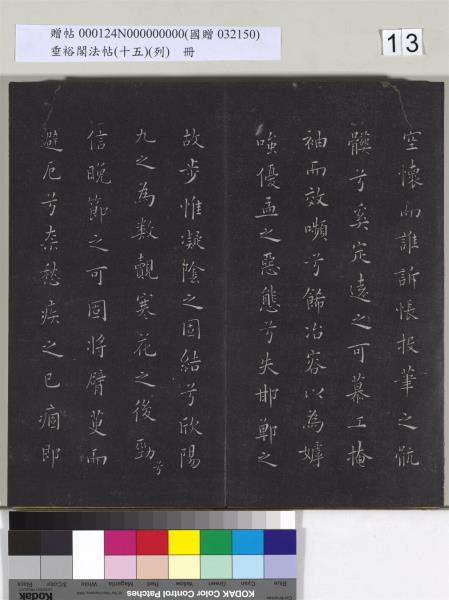 贈帖 000124N000000000(國贈 032150)
垂裕閣法帖(十五)(列) 冊
13
空懷而誰訴悵投筆之骯
髒兮奚定遠之可慕工掩
袖而效嚬兮飾冶容以為嫭
嗤優孟之惡態兮失邯鄲之
故步惟凝陰之固結兮欣陽
九之為数覿寒花之後勁兮
信晚節之可固將臂萸而
避厄兮柰愁疾之已痼即
Blue
Cyan
Green
Yellow
Red
Magenta
White
3/Color
Black
KODAK Color Control Patches